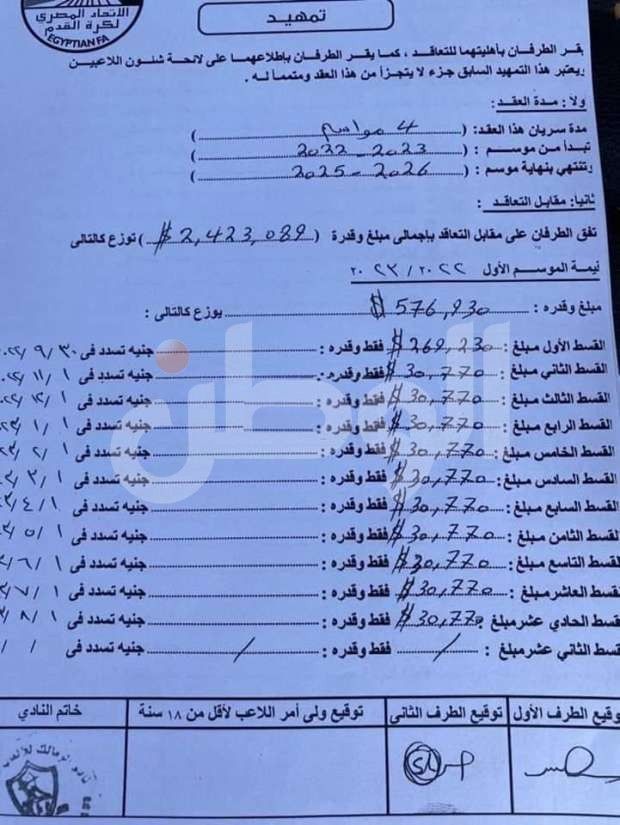 الاتحاد المصري
لكرة القدم
EGYPTIAN FA
تمهيد
يقر الطرفان بأهليتهما للتعاقد ، كما يقر الطرفان بإطلاعهما على لائحة شئون اللاعبين
ويعتبر هذا التمهيد السابق جزء لا يتجزأ من هذا العقد ومتمماً له .
ولا : مدة العقد :
مدة سريان هذا العقد : ( 4 مواسم )
تبدأ من موسم : ( 2022 - 2023 )
وتنتهي بنهاية موسم : ( 2025 - 2026 )
ثانيا : مقابل التعاقد :
تفق الطرفان على مقابل التعاقد بإجمالى مبلغ وقدرة ( $ 2,423,089 ) توزع كالتالى
قيمة الموسم الأول ٢٠٢٢ / ٢٠٢٣
مبلغ وقدره : $ 576,930 يوزع كالتالى :
القسط الأول مبلغ : $ 269,230 فقط وقدره : جنيه تسدد فى ٩/٣٠
القسط الثاني مبلغ : $ 30,770 فقط وقدره : جنيه تسدد فى ١١/١
القسط الثالث مبلغ : $ 30,770 فقط وقدره : جنيه تسدد فى ١٢/١
القسط الرابع مبلغ : $ 30,770 فقط وقدره : جنيه تسدد فى ١/١
القسط الخامس مبلغ : $ 30,770 فقط وقدره : جنيه تسدد فى ٢/١
القسط السادس مبلغ : $ 30,770 فقط وقدره : جنيه تسدد فى ٣/١
القسط السابع مبلغ : $ 30,770 فقط وقدره : جنيه تسدد فى ٤/١
القسط الثامن مبلغ : $ 30,770 فقط وقدره : جنيه تسدد فى ٥/١
القسط التاسع مبلغ : $ 30,770 فقط وقدره : جنيه تسدد فى ٦/١
القسط العاشر مبلغ : $ 30,770 فقط وقدره : جنيه تسدد فى ٧/١
القسط الحادي عشر مبلغ : $ 30,770 فقط وقدره : جنيه تسدد فى ٨/١
القسط الثاني عشر مبلغ : / فقط وقدره : / جنيه تسدد فى / /
توقيع الطرف الأول توقيع الطرف الثانى توقيع ولى أمر اللاعب لأقل من ١٨ سنة خاتم النادي
الوطن